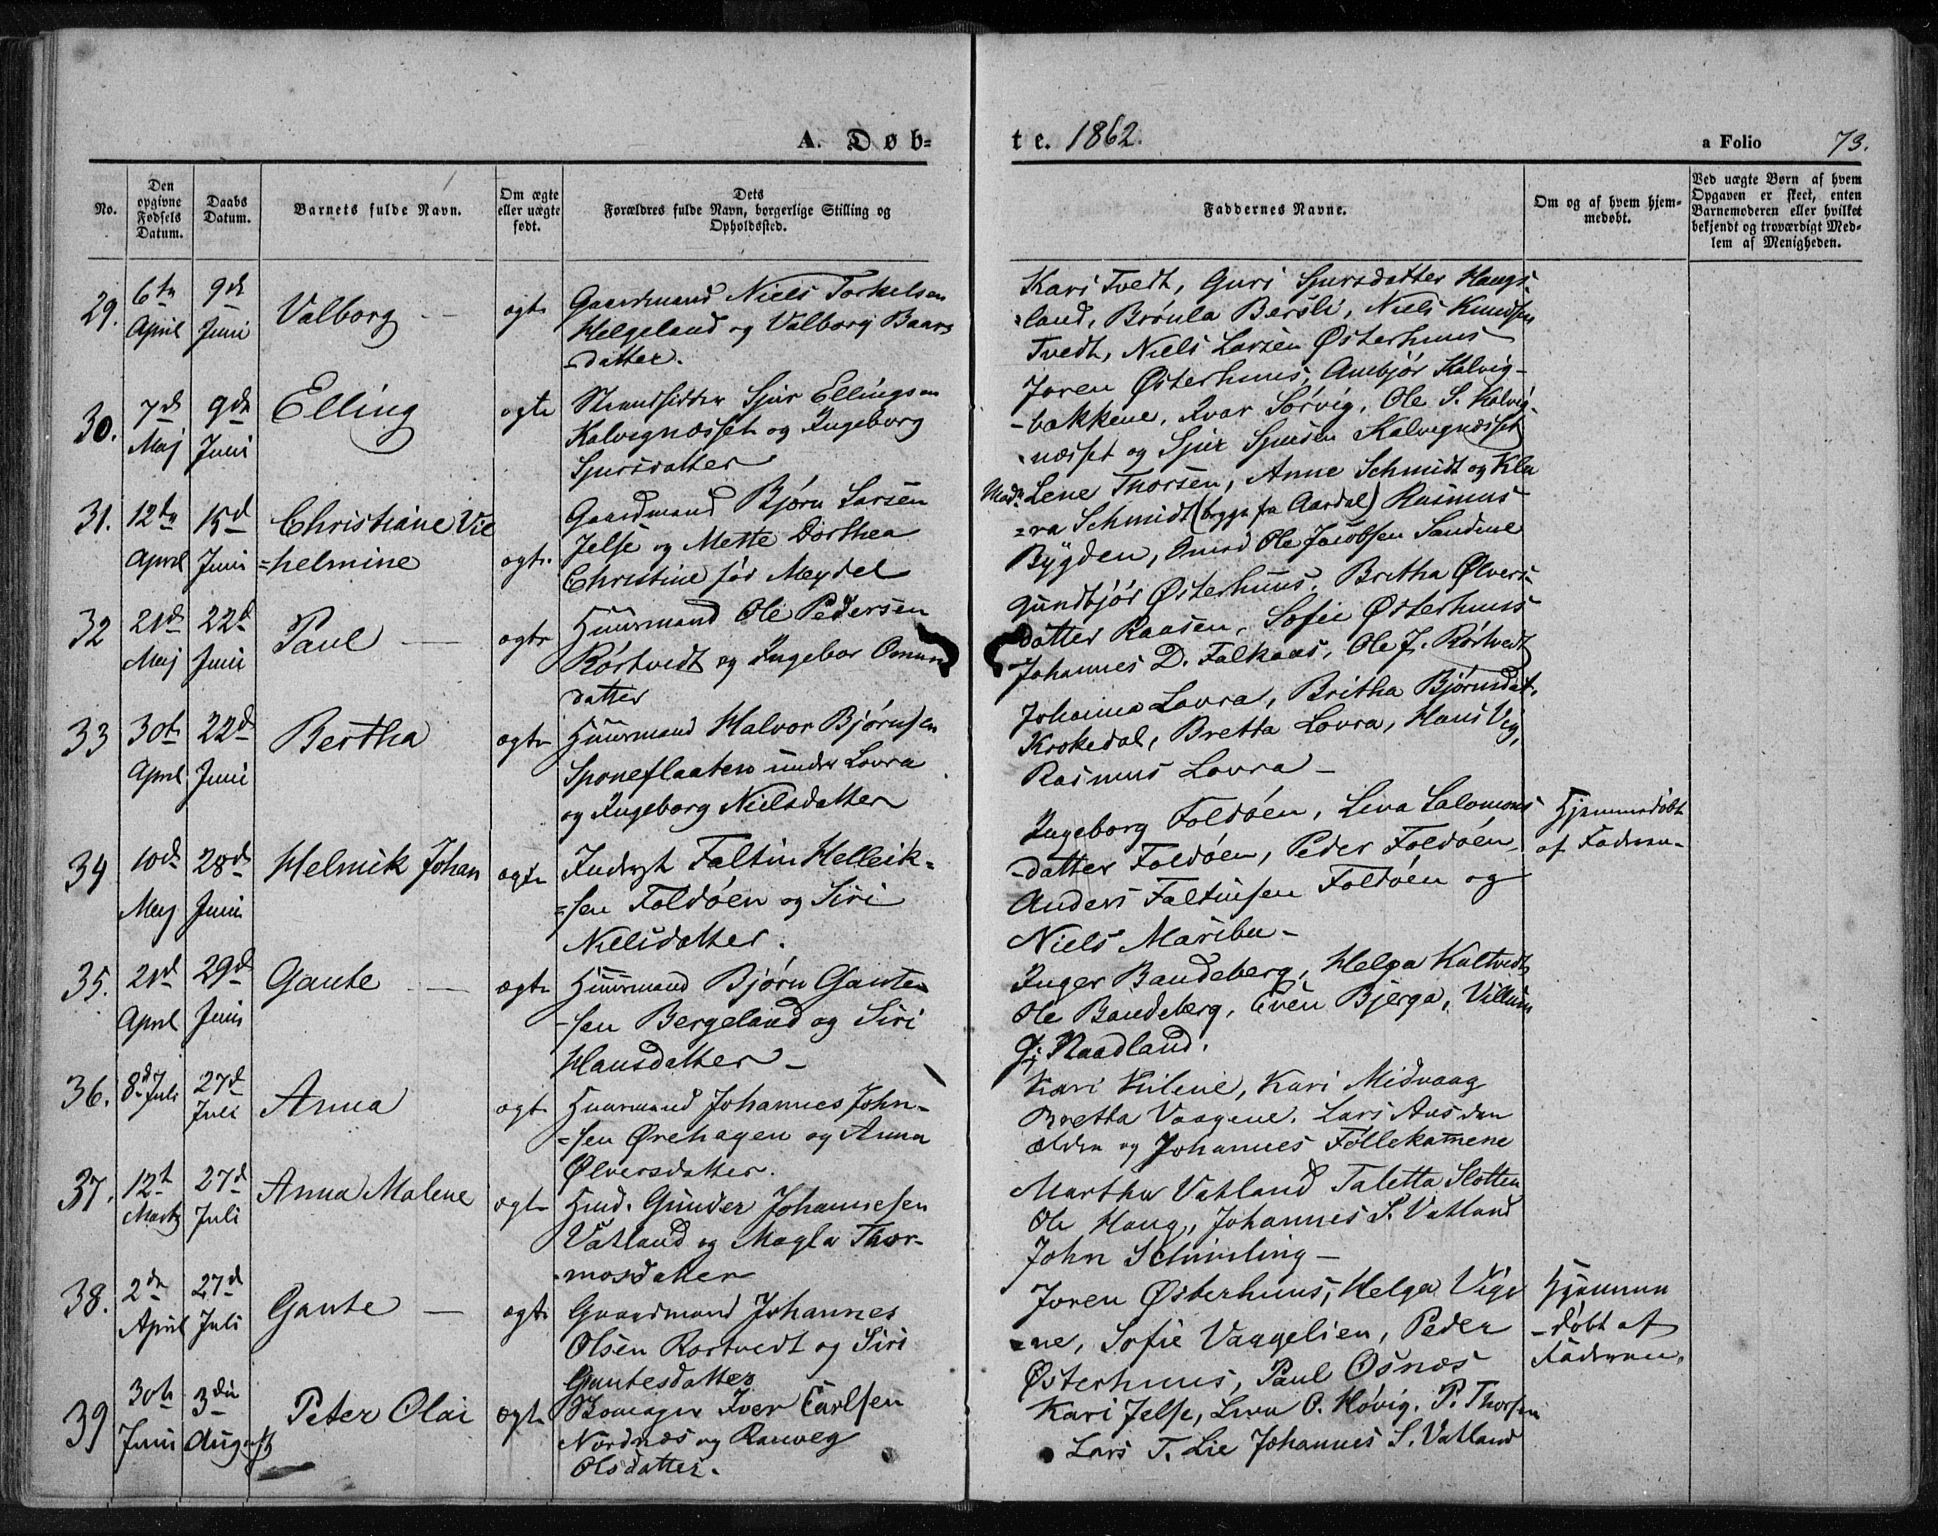 A. Døb-
te. 1862.
a Folio 73.
No.
Den opgivne Fødsels Datum.
Daabs Datum.
Barnets fulde Navn.
Om ægte eller uægte født.
Dets Forældres fulde Navn, borgerlige Stilling og Opholdssted.
Faddernes Navne.
Om og af hvem hjem-
medøbt.
Ved uægte Børn af hvem
Opgaven er skeet, enten
Barnemoderen eller hvilket
bekjendt og troværdigt Med-
lem af Menigheden.
29. 6te April 9de Juni Valborg — ægte
Gaardmand Niels Torkelsen
Helgeland og Valborg Baars
-datter.
Kari Tvedt, Guri Sjursdatter Haugs-
land, Brønla Bersli, Niels Knudsen
Tvedt, Niels Larsen Østerhuus
30. 7de Maj 9de Juni Elling ægte
Strandsidder Sjur Ellingsen
Kalvignæsset og Ingeborg
Sjursdatter
Joren Østerhuus, Ambjør Kalvig-
-bakkene, Ivar Sørvig, Ole S. Kalvig-
næsset og Sjur Sjursen Kalvignæsset
31. 12te April 15d Juni Christiane Vil
=helmine ægte
Gaardmand Bjørn Larsen
Jelse og Mette Dorthea
Christine fød Meydel
Mad. Lene Thorsen, Anne Schmidt og Kla
=ra Schmidt (begge fra Aardal) Rasmus
Bygden, Ole Jacobsen Sandene
32 21de Maj 22d Juni Paul — ægte
Huusmand Ole Pedersen
Rørtvedt og Ingebor Osmun
datter
Gundbjør Østerhuus, Britha Ølvers-
datter Raasen, Sofie Østerhuus
Johannes D. Falkaas, Ole J. Rørtvedt
33 30te April 22d Juni Bertha ægte
Huusmand Halvor Bjørnsen
Sponeflaaten under Lovra
og Ingeborg Nielsdatter
Johanna Lovra, Britha Bjørnsdat.
Krokedal, Bretta Lovra, Hans Vig,
Rasmus Lovra —
34 10de Maj 28de Juni Helmik Johan ægte
Inderst Faltin Helleik-
=sen Foldøen og Siri
Nielsdatter.
Ingeborg Foldøen, Lina Salomons
-datter Foldøen, Peder Foldøen
Anders Faltinsen Foldøen og
Niels Maribu —
Hjemmedøbt
af Faderen —
35. 21d April 29d Juni Gaute — ægte
Huusmand Bjørn Gaute-
-sen Bergeland og Siri
Hansdatter —
Inger Bandeberg, Helga Kaltvedt
Ole Bandeberg, Even Bjerga, Villum
G. Naadland.
36. 8d Juli 27d Juli Anna ægte
Huusmand Johannes John-
=sen Ørehagen og Anna
Ølversdatter.
Kari Hilene, Kari Midvaag
Bretta Vaagene. Lars Aus den
ældre og Johannes Føllekamene
37. 12t Marts 27d Juli Anna Malene ægte
Hmd. Gunder Johannesen
Vatland og Magla Thor-
mosdatter
Martha Vatland Taletta Slotten
Ole Haug, Johannes S. Vatland
John Schimling —
38. 2de April 27d Juli Gaute — ægte
Gaardmand Johannes
Olsen Rørtvedt og Siri
Gautesdatter
Joren Østerhuus, Helga Vige
=ne, Sofie Vaagelien, Peder
Østerhuus, Paul Osnæs
Hjemme
-døbt af
Faderen.
39 30te Juni 3die August Peter Olai ægte
Iver Carlsen
Nordnæs og Ranveg
Olsdatter.
Kari Jelse, Lina O. Høvig. P. Thorsen
Lars T. Lie Johannes S. Vatland